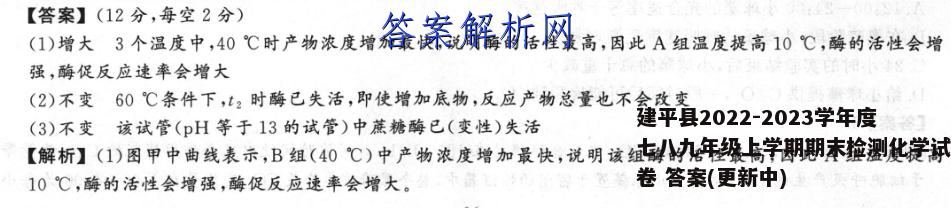 【答案】(12分,每空2分)
答案解析网
(1)增大 3个温度中,40 ℃时产物浓度增加最快,说明酶的活性最高,因此A组温度提高10 ℃,酶的活性会增
强,酶促反应速率会增大
(2)不变 60 ℃条件下,t₂ 时酶已失活,即使增加底物,反应产物总量也不会改变
(3)不变 该试管(pH等于13的试管)中蔗糖酶已(变性)失活
建平县2022-2023学年度
七八九年级上学期期末检测化学试
卷 答案(更新中)
【解析】(1)图甲中曲线表示,B组(40 ℃)中产物浓度增加最快,说明该组酶的活性最高,因此A组温度提高
10 ℃,酶的活性会增强,酶促反应速率会增大。